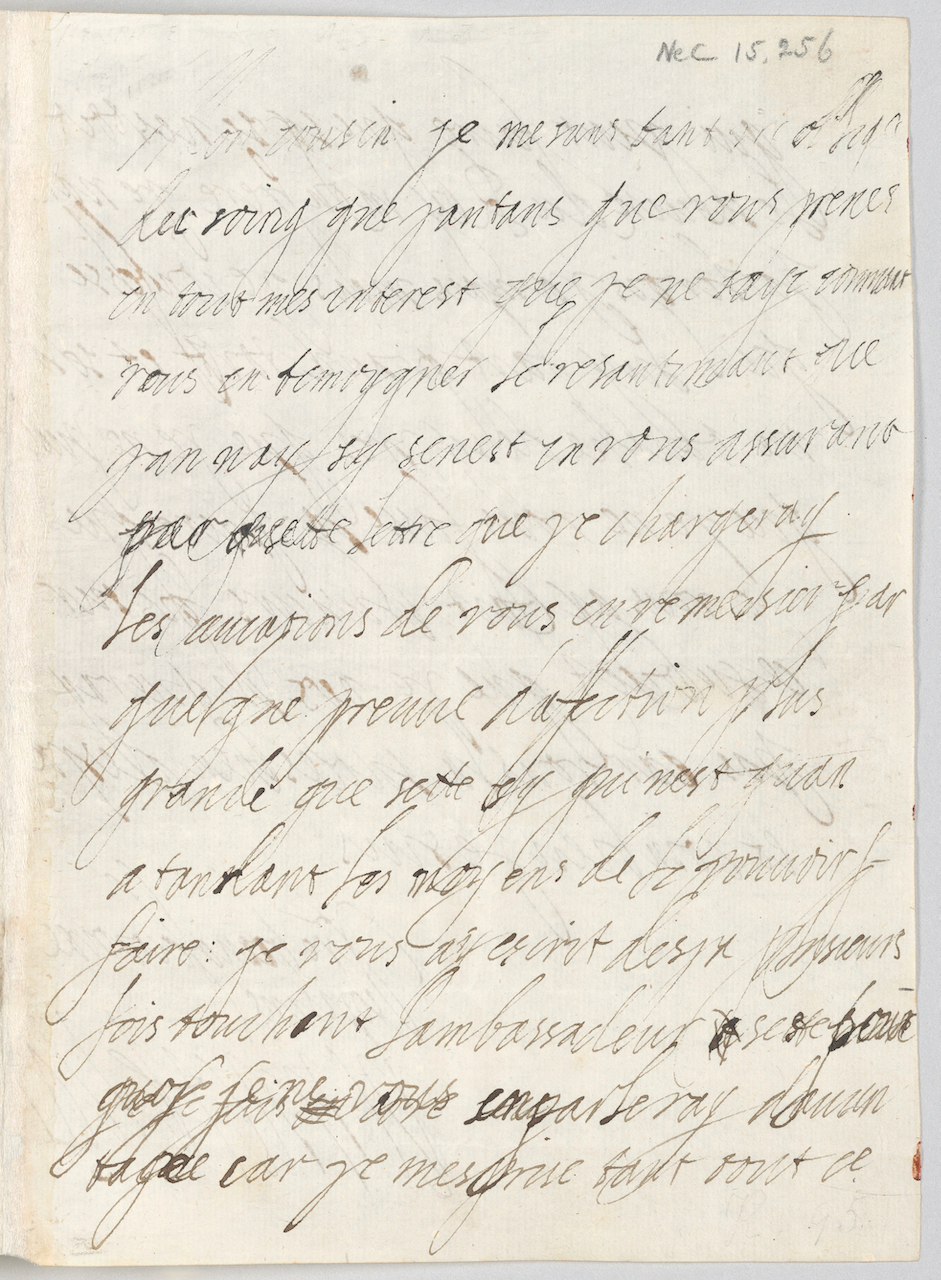 NeC 15,256
Mon cousin je me sans tant obligé
des soing que jantans que vous prenes
en tout mes interest que je ne saye comment
vous en temoygner le resantimant que
jan nay sy senest en vous assurant
par sette lettre que je chargeray
les aucasions de vous en remersier par
quelque preuve dafection plus
grande que sette sy qui nest quan
atandant les moyens de le pouvoir
faire: je vous ay escrit desja plusieurs
fois touchant lambassadeur sest pour
quoy je ne vous en parleray davan
tage car je mesprise tant tout ce